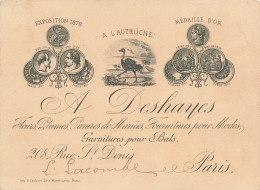 EXPOSITION 1878
MÉDAILLE D'OR
A L'AUTRUCHE
A Deshayes
Fleurs, Plumes, Parures de Mariées, Fournitures pour Modes,
Garnitures pour Bals.
208, Rue St Denis
Paris.